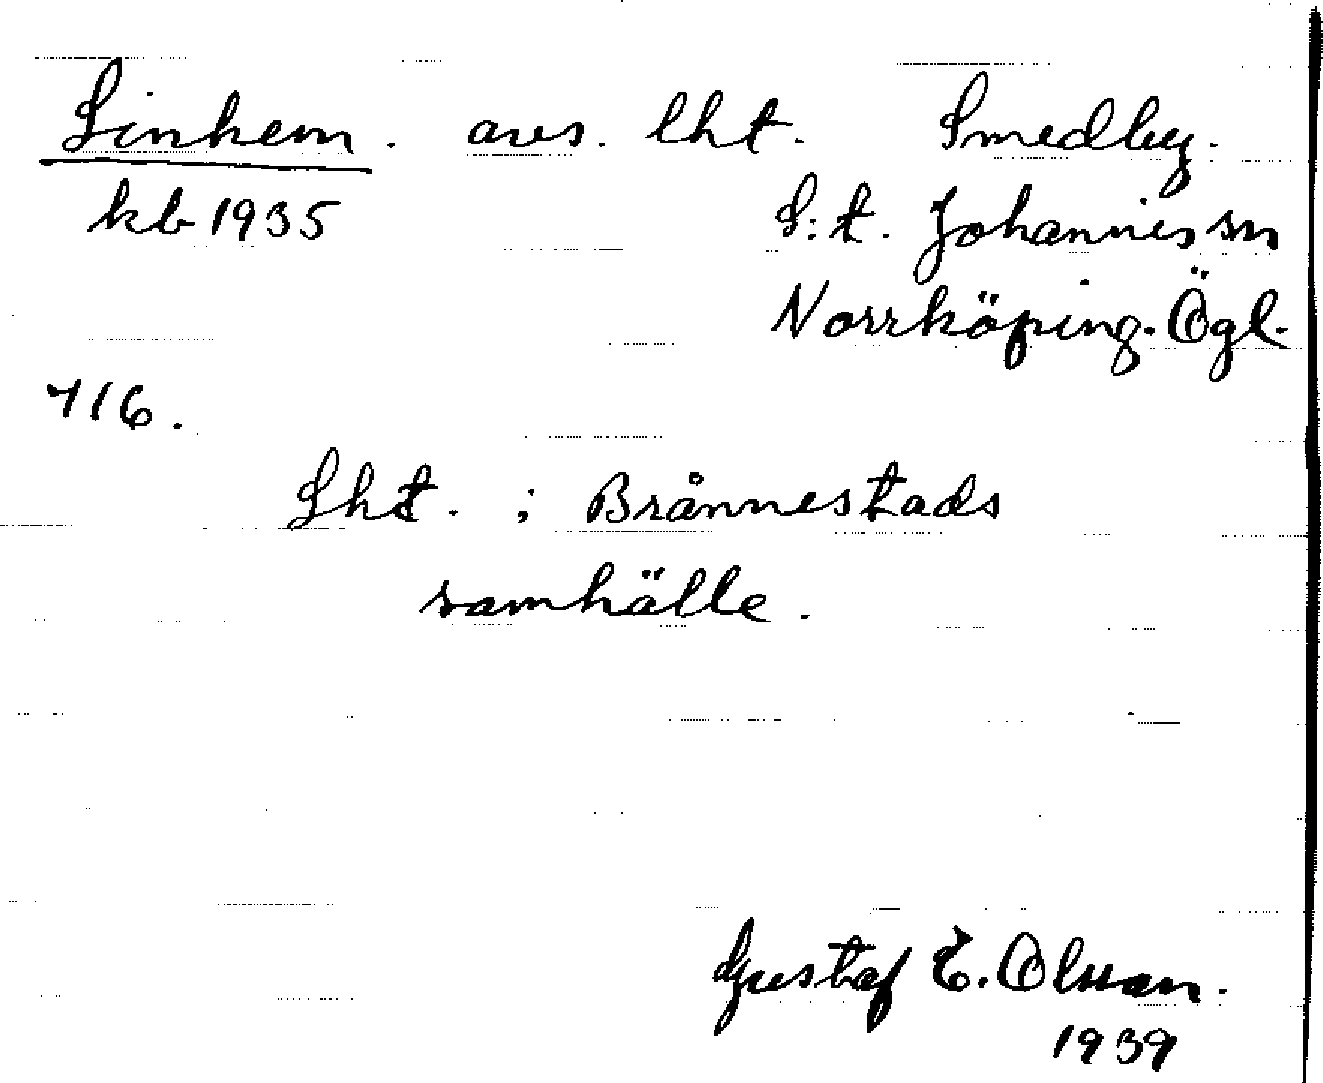 Linhem. avs. lht. Smedby.
kb 1935 S:t. Johannes sn
Norrköping. Ögl.
716.
Lht. i Brånnestads
samhälle.
Gustaf E. Olsson.
1939